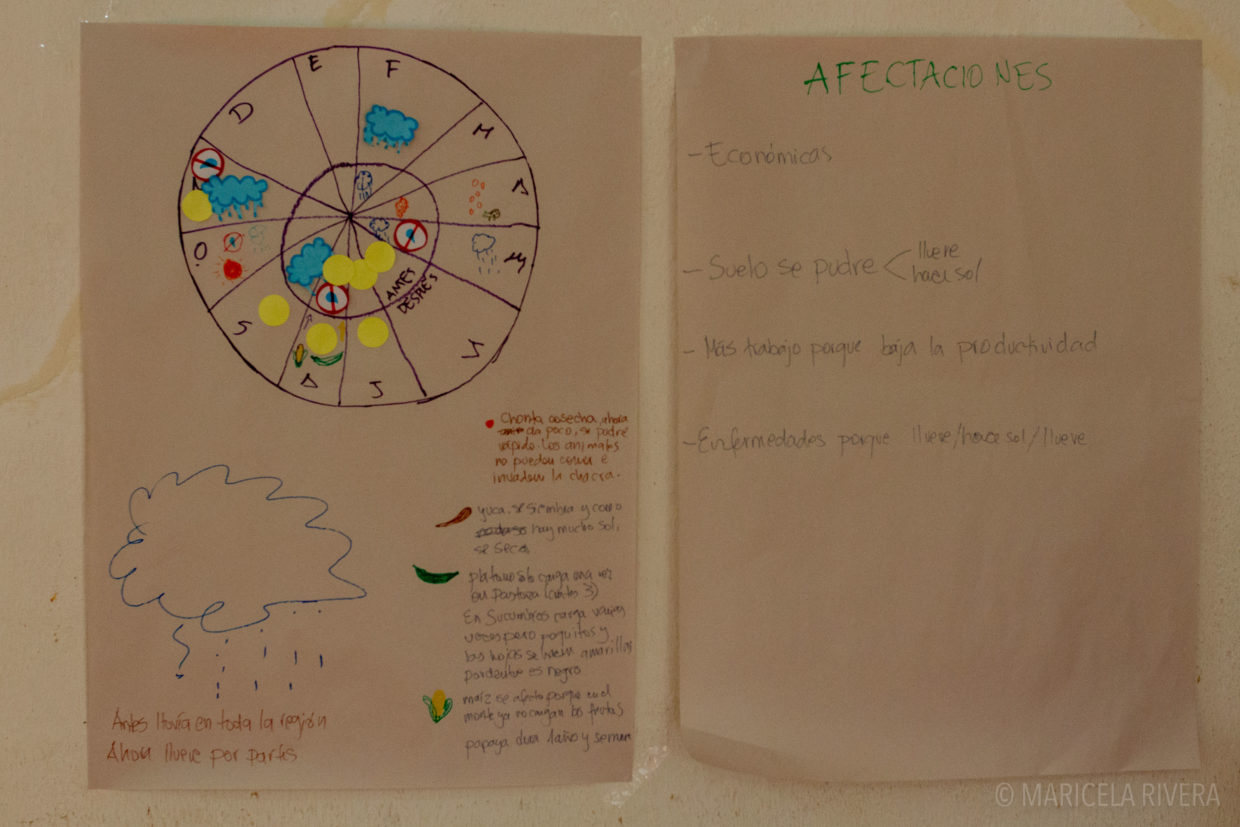 E
F
M
A
M
J
J
A
S
O
N
D
ANTES
DESPUES
Chonta cosecha, ahora
da poco, se pudre
rápido. Los animales
no pueden comer e
invaden la chacra.
yuca. se siembra y como
hay mucho sol,
se seca
platano solo carga una vez
en Pastaza (antes 3)
En Sucumbios carga varias
veces pero poquitos y
las hojas se ven amarillas
por dentro es negro
maíz se afecta porque en el
monte ya no cargan las frutas
papaya dura 1 año y
Antes llovía en toda la región
Ahora llueve por partes
AFECTACIONES
- Económicas
- Suelo se pudre < llueve
hace sol
- Más trabajo porque baja la productividad
- Enfermedades porque llueve/hace sol/llueve
© MARICELA RIVERA